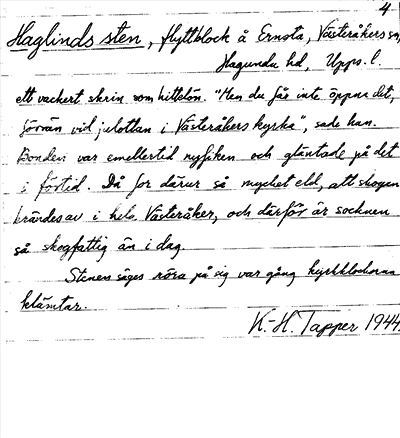 4
Haglinds sten, flyttblock å Ernsta, Västeråkers sn,
Hagunda hd, Upps. l.
ett vackert skrin som hittelön. "Men du får inte öppna det,
förrän vid julottan i Västeråkers kyrka", sade han.
Bonden var emellertid nyfiken och gläntade på det
i förtid. Då for därur så mycket eld, att skogen
brändes av i hela Västeråker, och därför är socknen
så skogfattig än i dag.
Stenen säges röra på sig var gång kyrkklockorna
klämtar.
K.-H. Tapper 1944